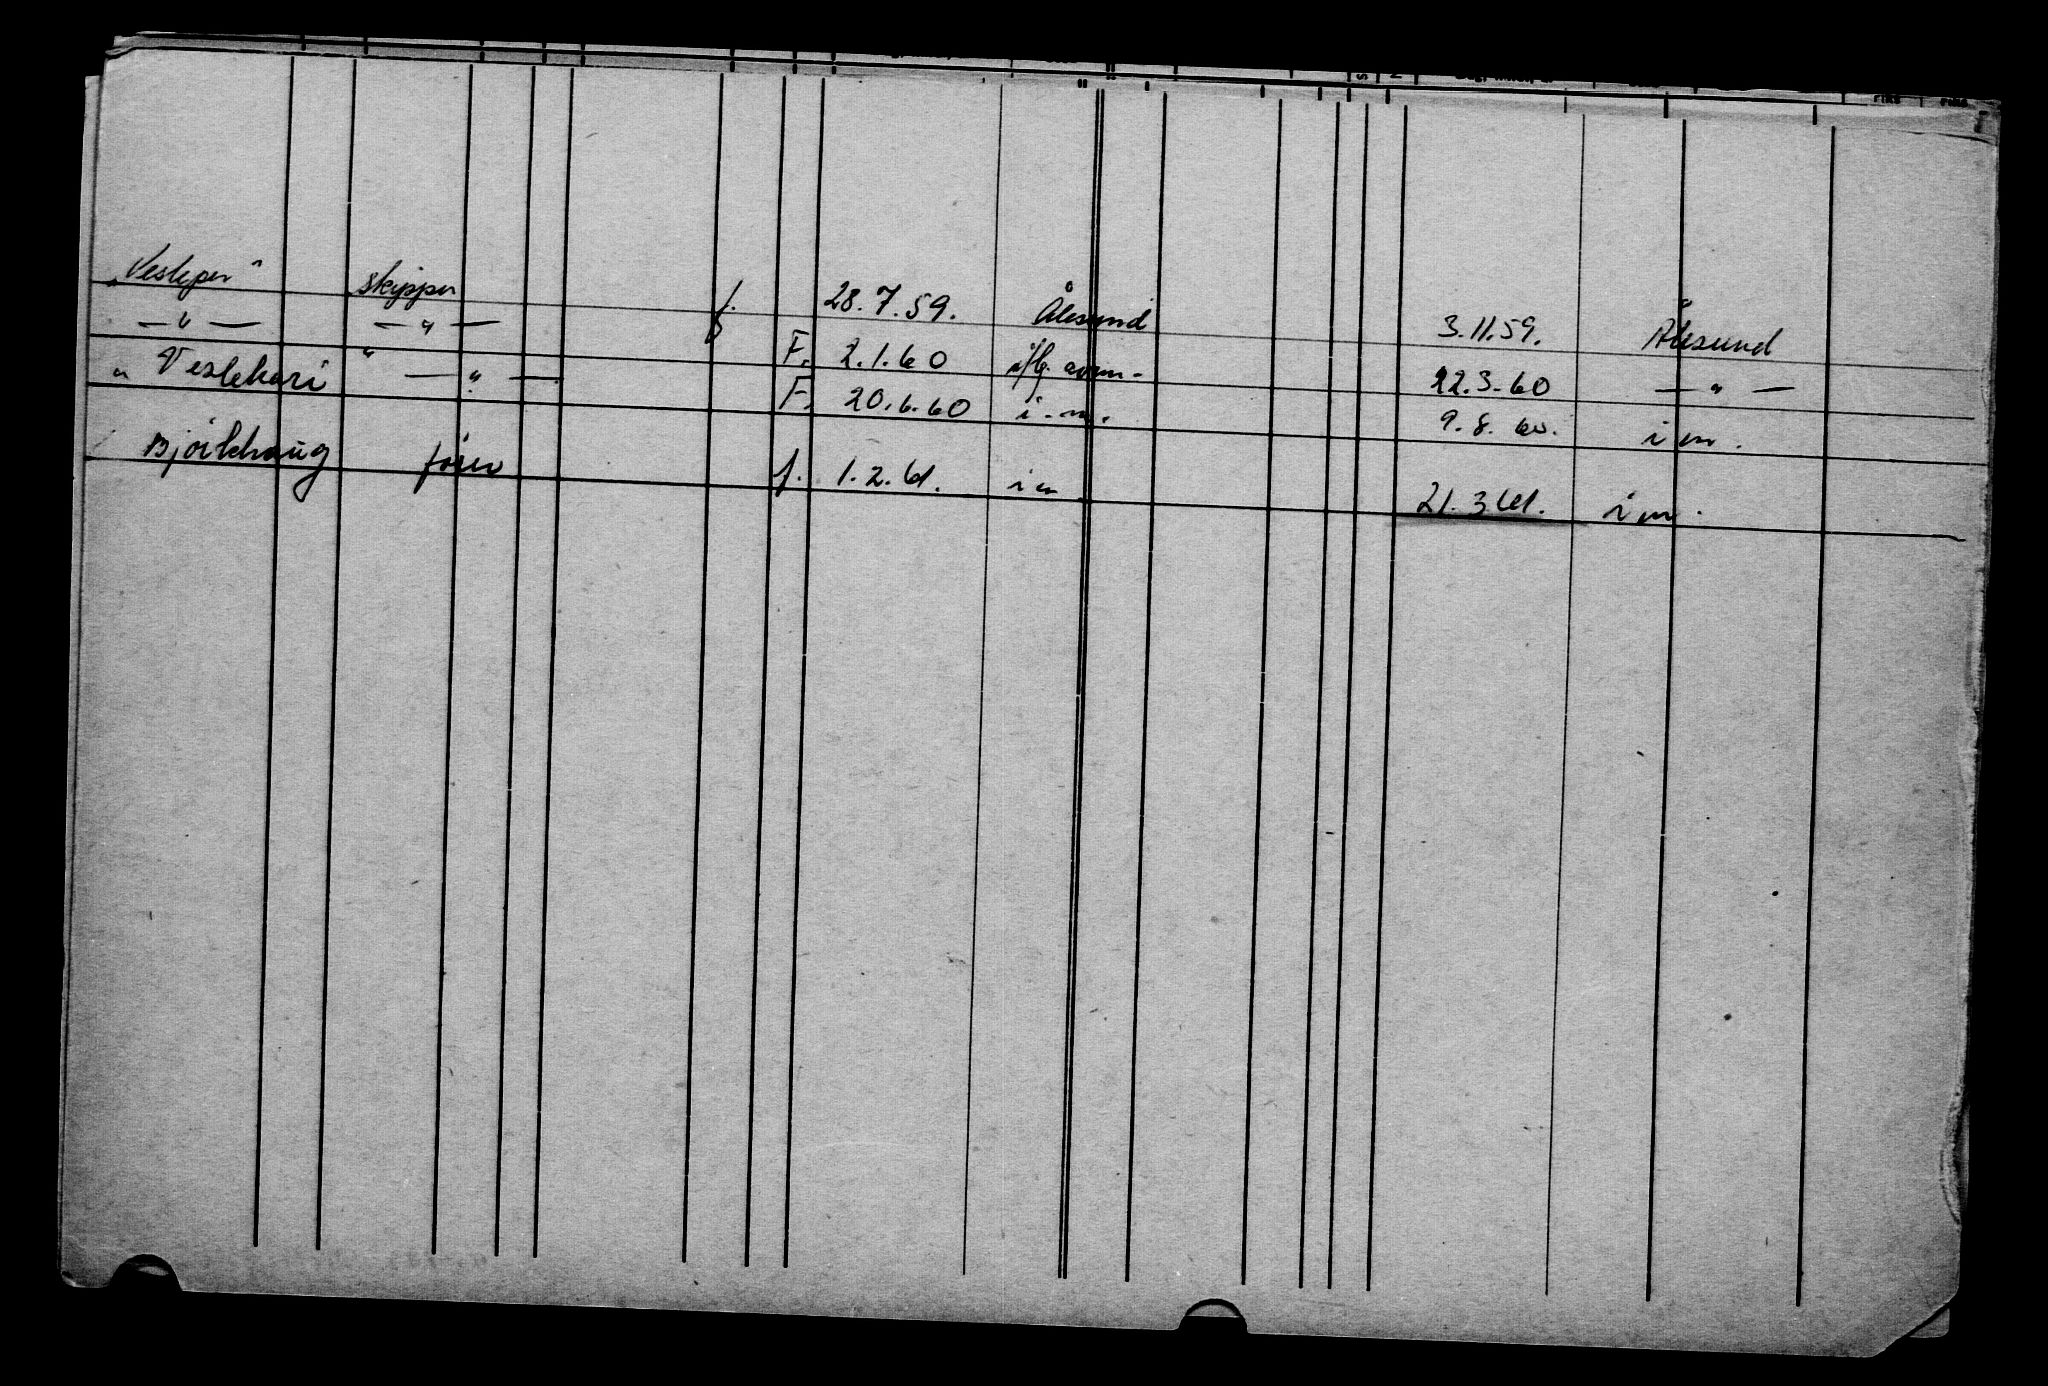 "Vesleper" skipper f. 28.7.59. Ålesund 3.11.59. Ålesund
— " — — " — F. 2.1.60 i/flg. 22.3.60 — " —
" Veslekari " — " — F. 20.6.60 i.m. 9.8.60. i m.
Bjørkhaug fører f. 1.2.61. i m 21.3.61. i m.